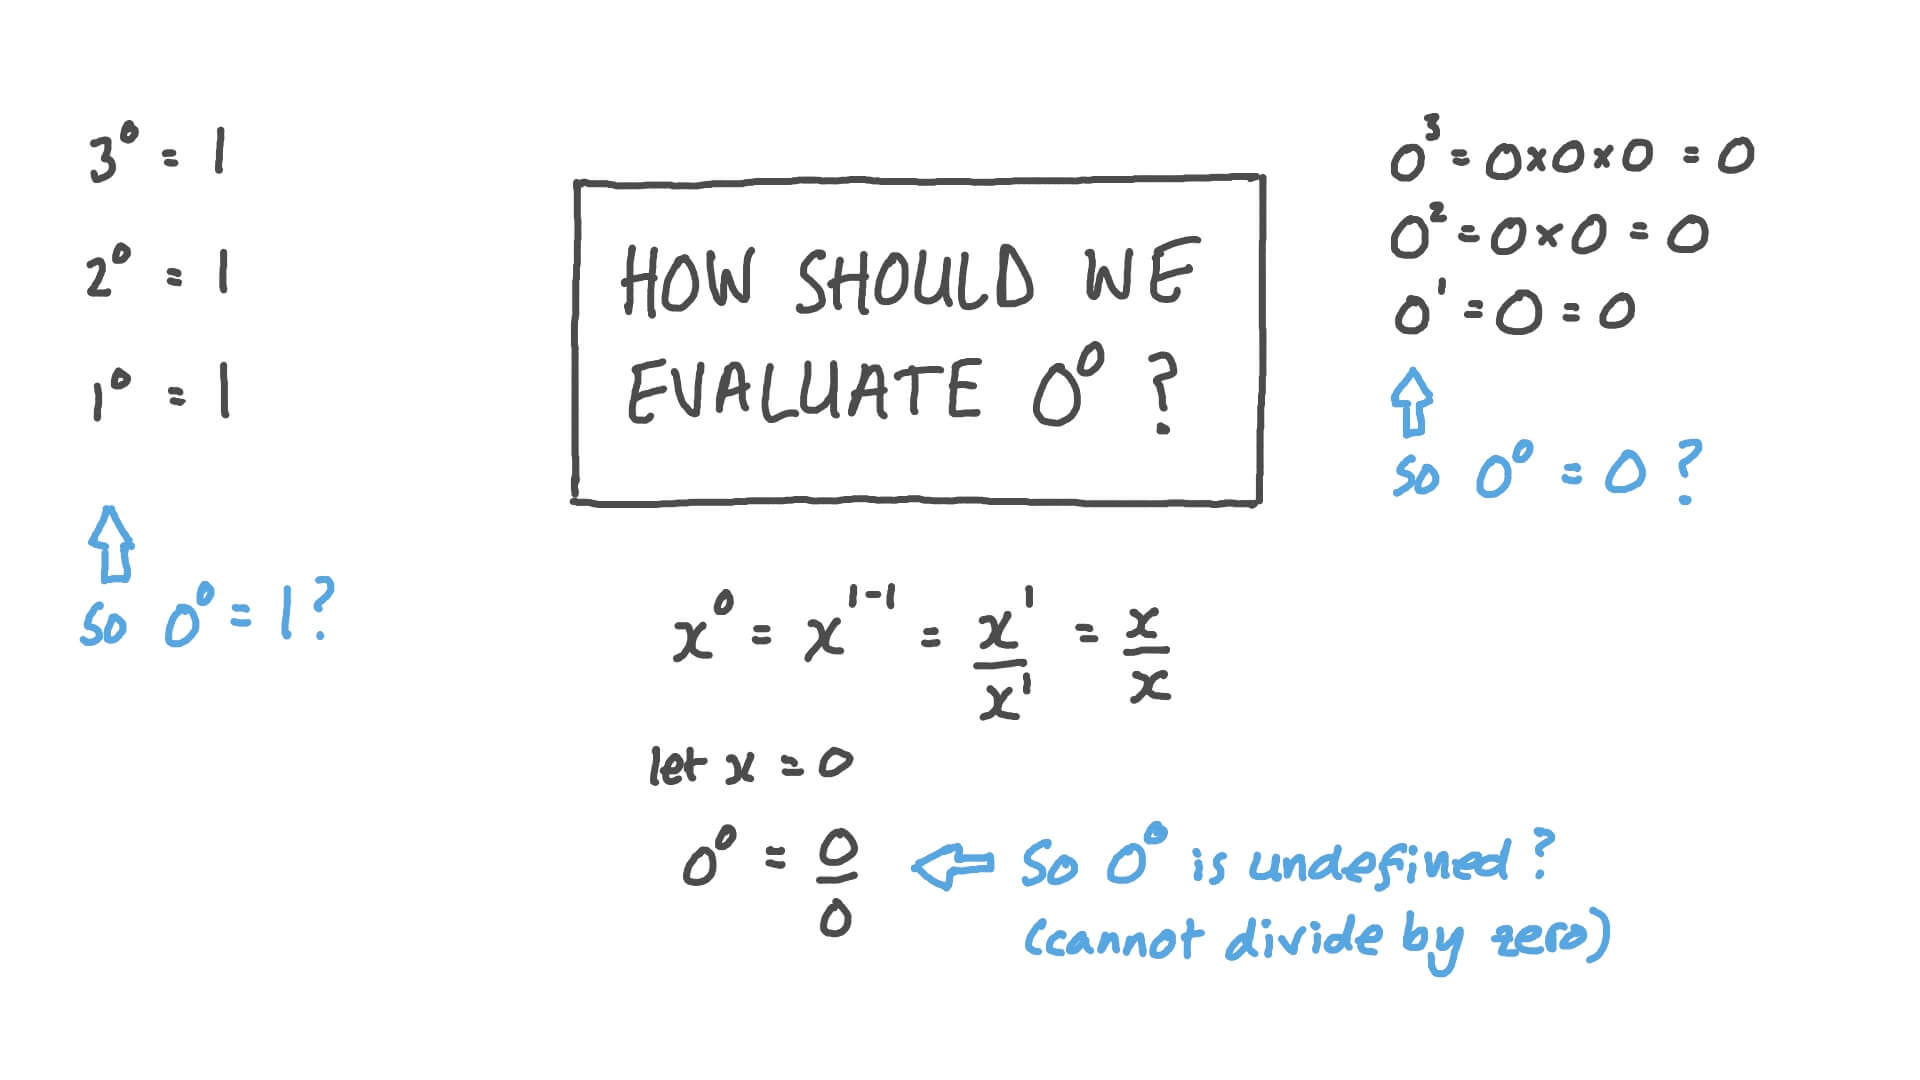 3⁰ = 1
2⁰ = 1
1⁰ = 1
so 0⁰ = 1?
HOW SHOULD WE
EVALUATE 0⁰ ?
0³ = 0×0×0 = 0
0² = 0×0 = 0
0¹ = 0 = 0
so 0⁰ = 0 ?
x⁰ = x¹⁻¹ = x¹/x¹ = x/x
let x = 0
0⁰ = 0/0
So 0⁰ is undefined?
(cannot divide by zero)